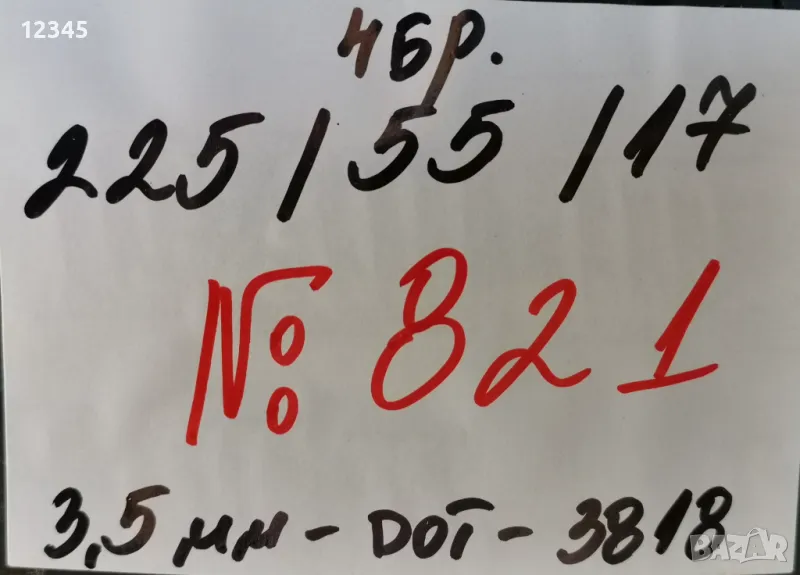 12345
4бр.
225/55/17
№ 821
3,5мм - DOT - 3818
BAZAR